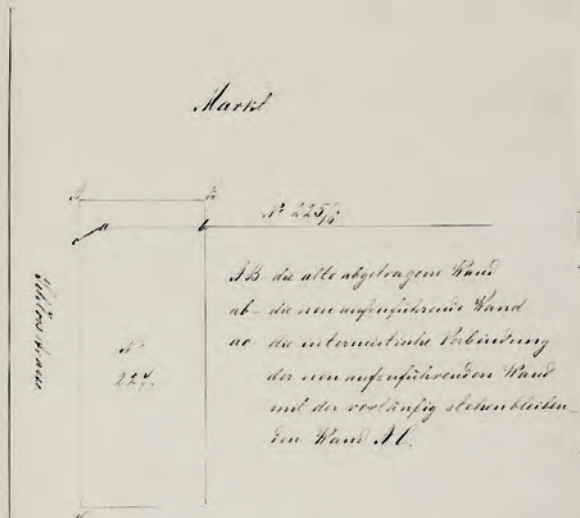 Markt
A
B
No 225/6
a
b
c
Schlossstrasse
No
227.
AB - die alte abgetragene Wand
ab - die neu aufzuführende Wand
ac - die interimistische Verbindung
der neu aufzuführenden Wand
mit der vorläufig stehenbleiben-
den Wand AC.